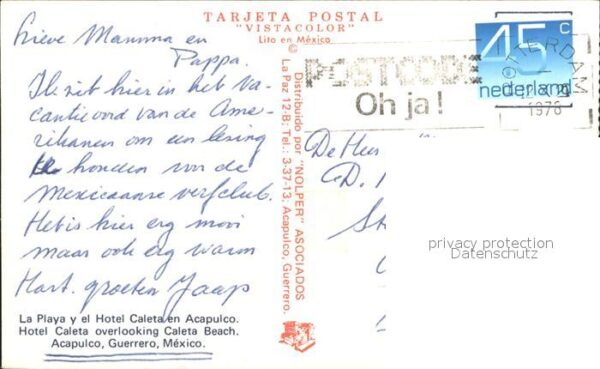 TARJETA POSTAL
"VISTACOLOR"
Lito en México
©
Lieve Mamma en
Pappa.
Ik zit hier in het Va-
cantieoord van de Ame-
rikanen om een lezing
te houden voor de
Mexicaanse verfclub.
Het is hier erg mooi
maar ook erg warm
Hart. groeten Jaap
La Playa y el Hotel Caleta en Acapulco.
Hotel Caleta overlooking Caleta Beach.
Acapulco, Guerrero, México.
Distribuido por "NOLPER" ASOCIADOS
La Paz 12-B; Tel.: 3-37-13; Acapulco, Guerrero.
POSTCODE
Oh ja!
ROTTERDAM
1978
45 c
nederland
De Heer
D.
privacy protection
Datenschutz